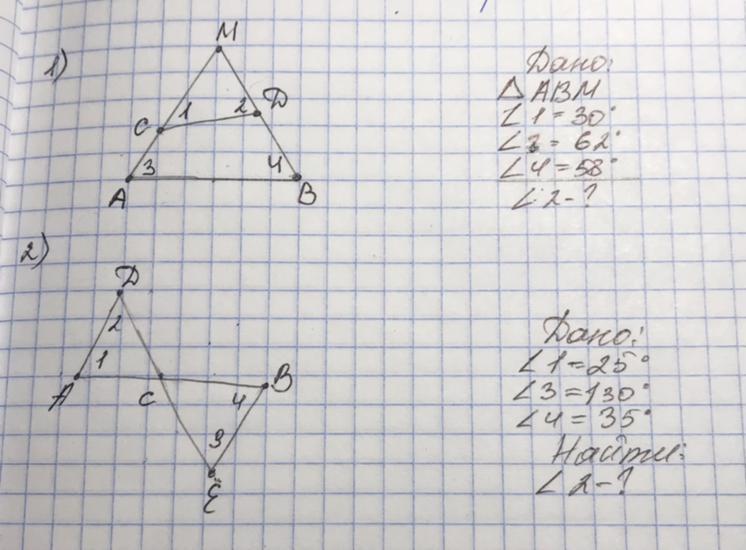 1)
M
C 1 2 D
3 4
A B
Дано:
△ ABM
∠1=30°
∠3=62°
∠4=58°
∠2-?
2)
D
2
1
A C 4 B
3
E
Дано:
∠1=25°
∠3=130°
∠4=35°
Найти:
∠2-?